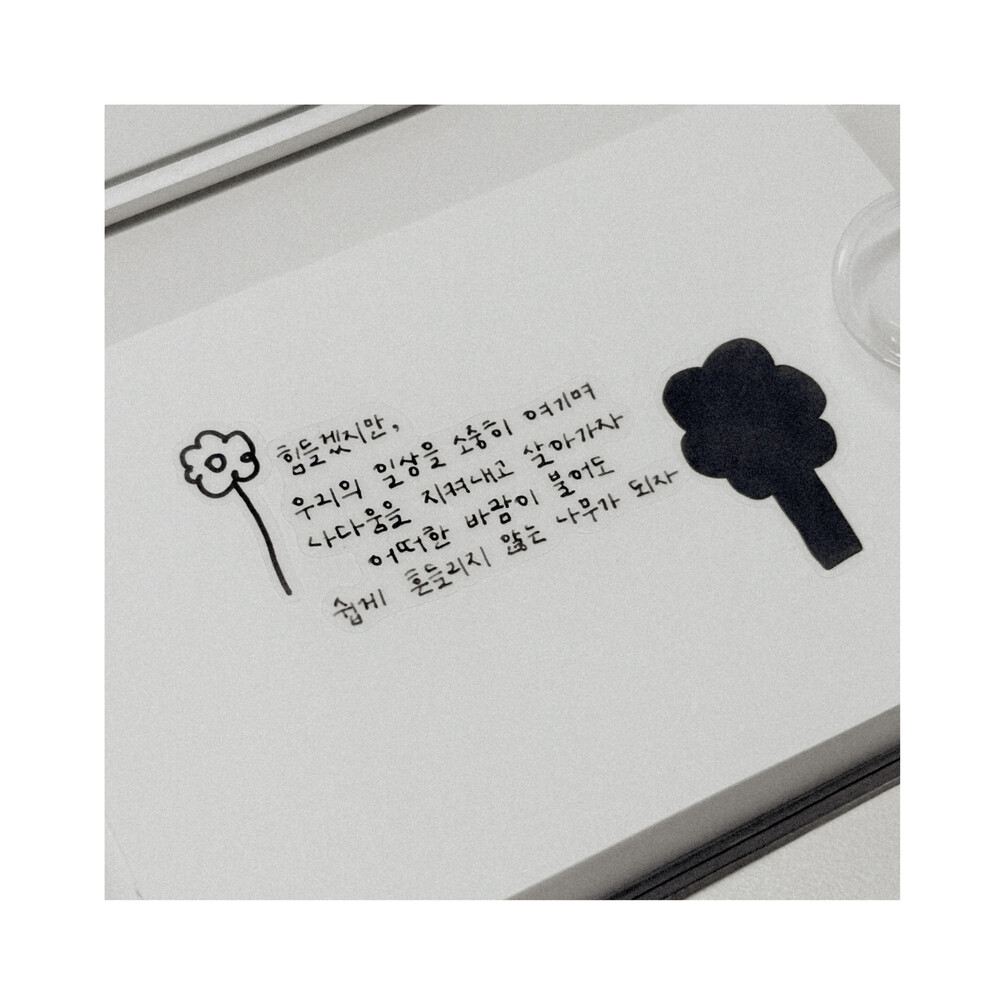 힘들겠지만,
우리의 일상을 소중히 여기며
나다움을 지켜내고 살아가자
어떠한 바람이 불어도
쉽게 흔들리지 않는 나무가 되자